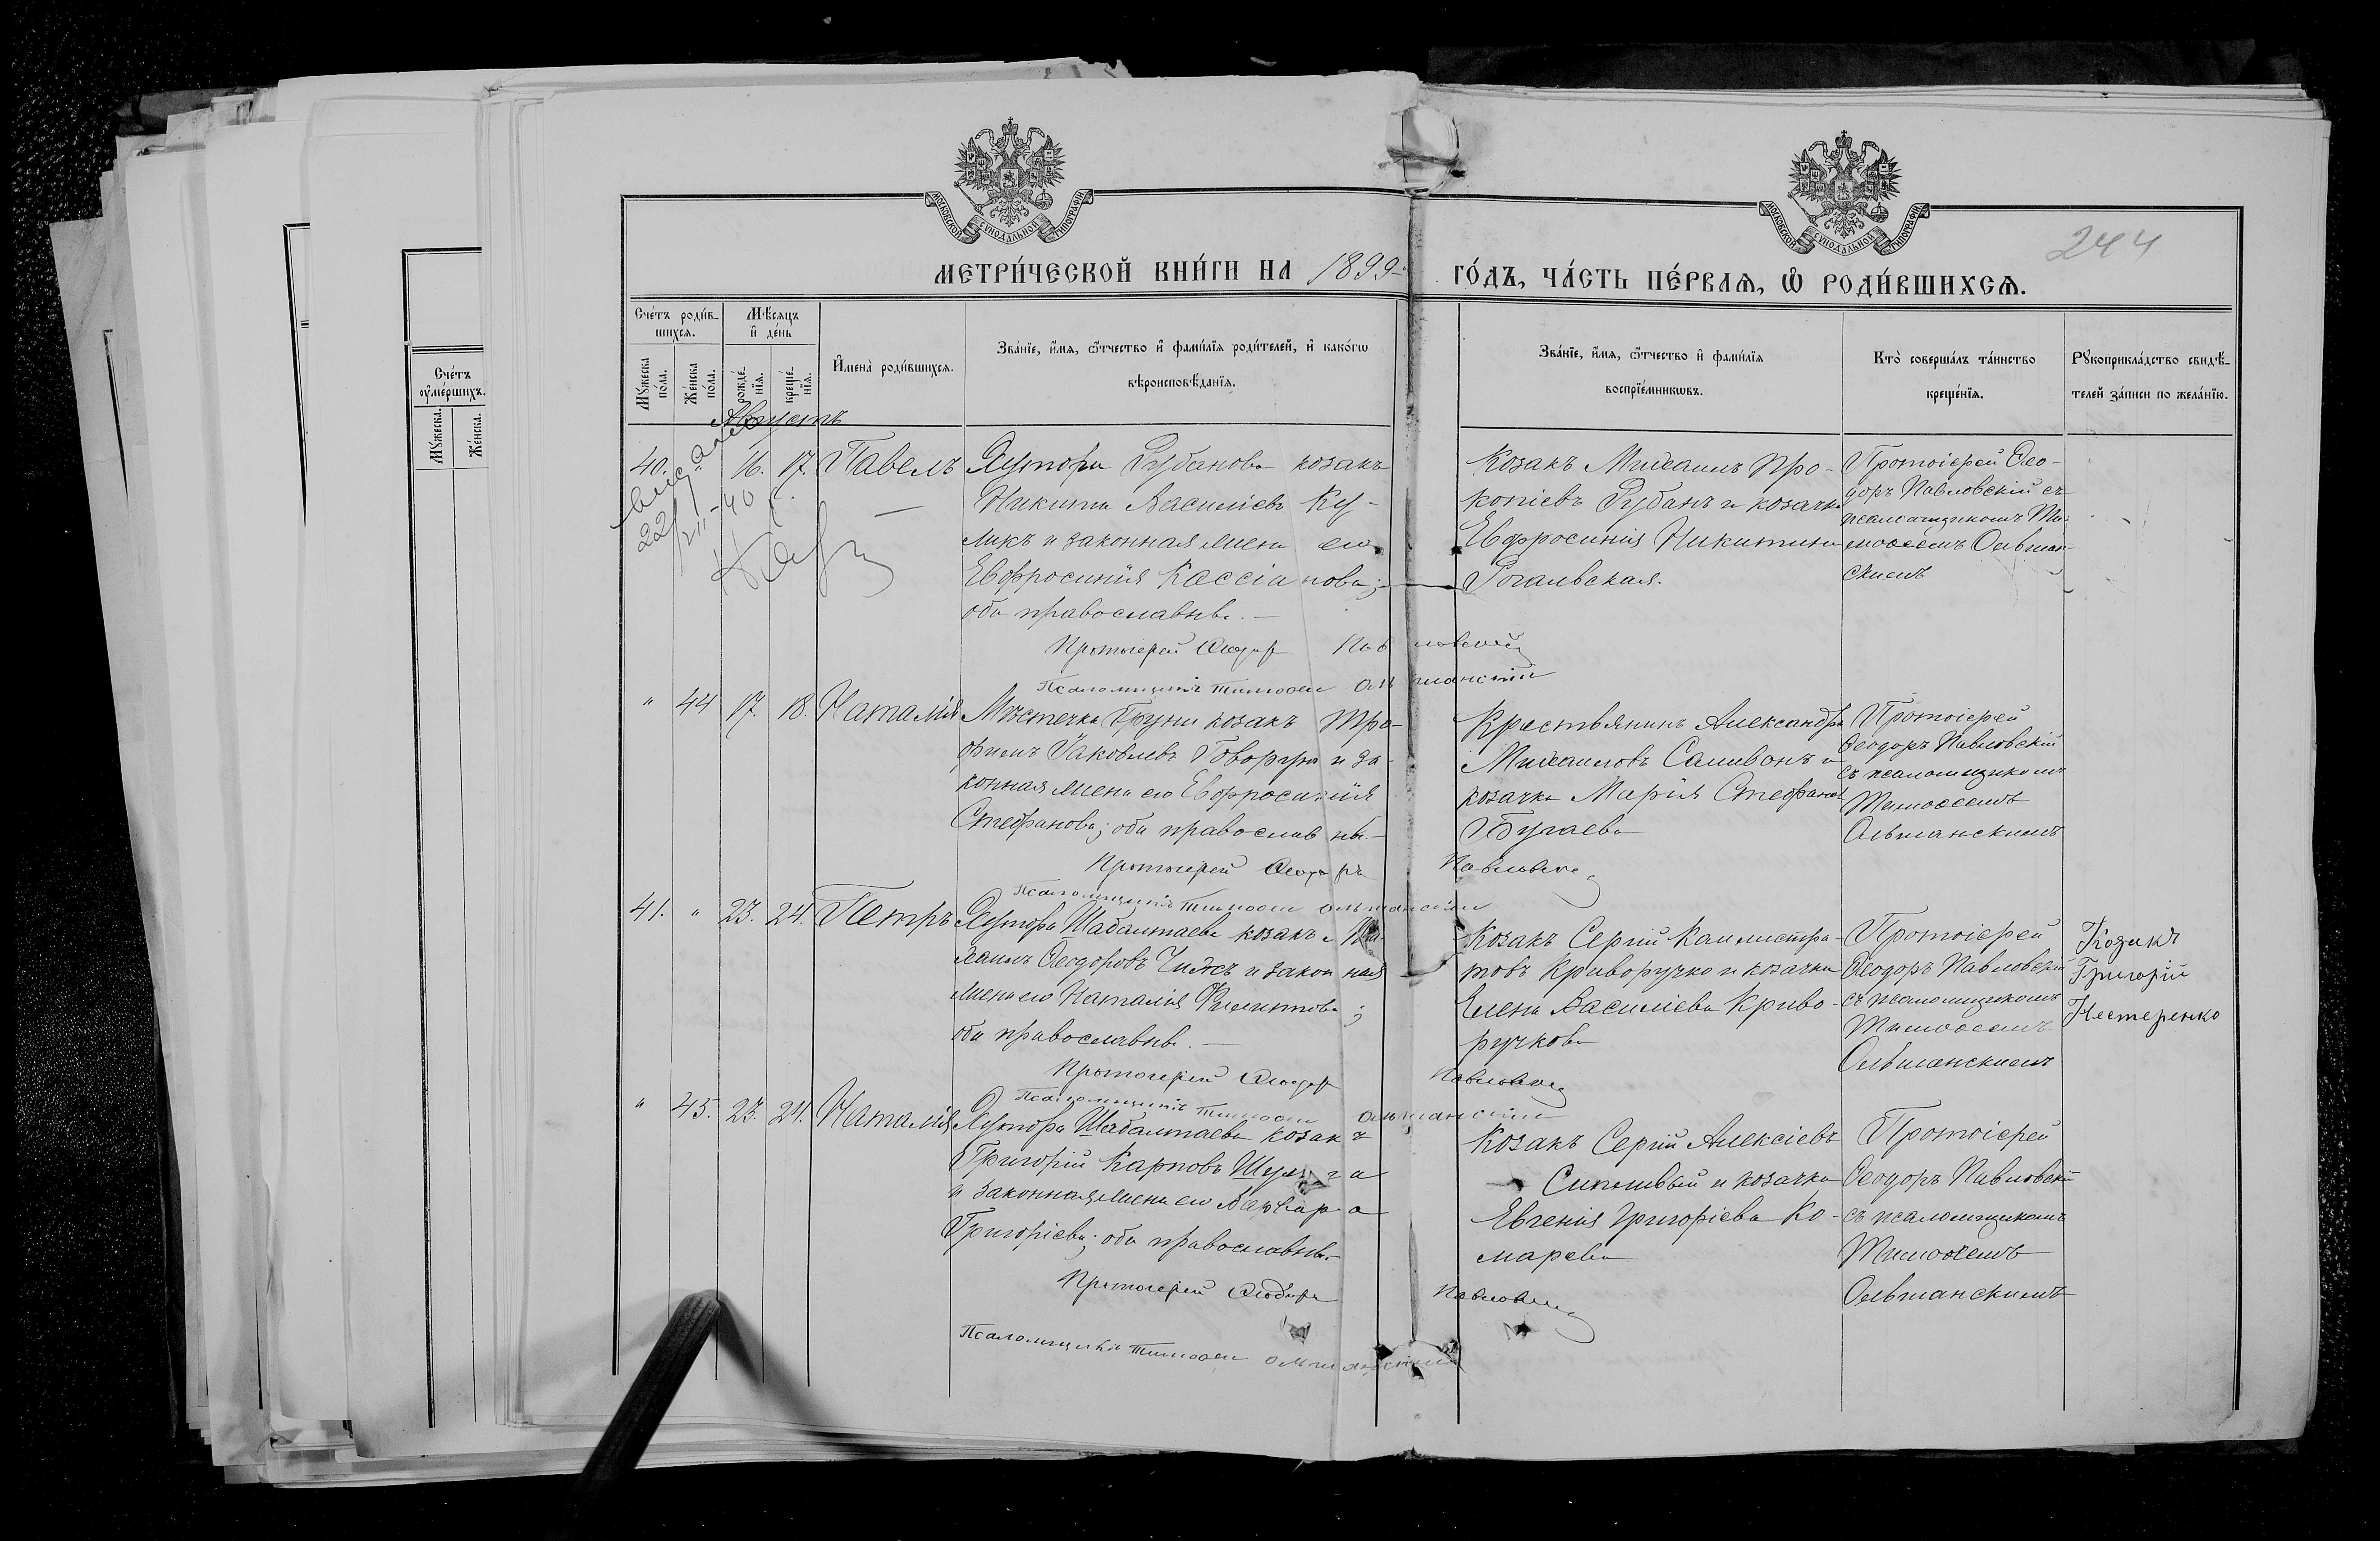 МОСКОВСКОЙ СѴНОДАЛЬНОЙ ТИПОГРАФІИ.
МОСКОВСКОЙ СѴНОДАЛЬНОЙ ТИПОГРАФІИ.
244
МЕТРИ́ЧЕСКОЙ КНИ́ГИ НА 1899 ГО́ДЪ, ЧА́СТЬ ПЕ́РВАѦ, Ѡ҆ РОДИ́ВШИХСѦ.
Сче́тъ роди́в-
шихсѧ.
Мꙋ́жеска
по́ла.
Же́нска
по́ла.
Мѣ́сѧцъ
и҆ де́нь
рожде́-
нїѧ.
креще́-
нїѧ.
И҆мена̀ роди́вшихсѧ.
Зва́нїе, и҆́мѧ, ѻ҆́тчество и҆ фами́лїѧ роди́телей, и҆ како́гѡ
вѣроисповѣ́данїѧ.
Зва́нїе, и҆́мѧ, ѻ҆́тчество и҆ фами́лїѧ
воспрїе́мникѡвъ.
Кто̀ соверша́лъ та́инство
креще́нїѧ.
Рꙋкоприкла́дство свидѣ́-
телей за́писи по жела́нїю.
Сче́тъ
ᲂу҆ме́ршихъ.
Мꙋ́жеска.
Же́нска.
Августъ
40. " 16. 17. Павелъ
Хутора Рубанова козакъ
Никита Василіевъ Ку-
ликъ и законная жена его
Евфросинія Кассіанова;
оба православные.
Протоіерей Ѳеодоръ Павловскій
Псаломщикъ Тимоѳей Ольшанскій
Козакъ Михаилъ Про-
копіевъ Рубанъ и козачка
Евфросинія Никитина
Рогальская.
Протоіерей Ѳео-
доръ Павловскій съ
псаломщикомъ Ти-
моѳеемъ Ольшан-
скимъ
22/VII-40
" 44 17. 18. Наталія
Мѣстечка Груни козакъ Тро-
фимъ Іаковлевъ Говоруха и за-
конная жена его Евфросинія
Стефанова; оба православные
Протоіерей Ѳеодоръ Павловскій
Псаломщикъ Тимоѳей Ольшанскій
Крестьянинъ Александръ
Михаиловъ Саливонъ и
козачка Марія Стефанова
Бугаева
Протоіерей
Ѳеодоръ Павловскій
съ псаломщикомъ
Тимоѳеемъ
Ольшанскимъ
41. " 23. 24. Петръ
Хутора Шабалтаева козакъ Ми-
хаилъ Ѳеодоровъ Чижъ и законная
жена его Наталія
оба православные.
Протоіерей Ѳеодоръ Павловскій
Псаломщикъ Тимоѳей Ольшанскій
Козакъ Сергій Каллистра-
товъ Криворучко и козачка
Елена Василіева Криво-
ручкова
Протоіерей
Ѳеодоръ Павловскій
съ псаломщикомъ
Тимоѳеемъ
Ольшанскимъ
Григорій
Нестеренко
" 45. 23. 24. Наталія
Хутора Шабалтаева козакъ
Григорій Карповъ Шульга
и законная жена его Варвара
Григоріева; оба православные.
Протоіерей Ѳеодоръ Павловскій
Псаломщикъ Тимоѳей Ольшанскій
Козакъ Сергій Алексіевъ
Сипливый и козачка
Евгенія Григоріева Ко-
марева
Протоіерей
Ѳеодоръ Павловскій
съ псаломщикомъ
Тимоѳеемъ
Ольшанскимъ